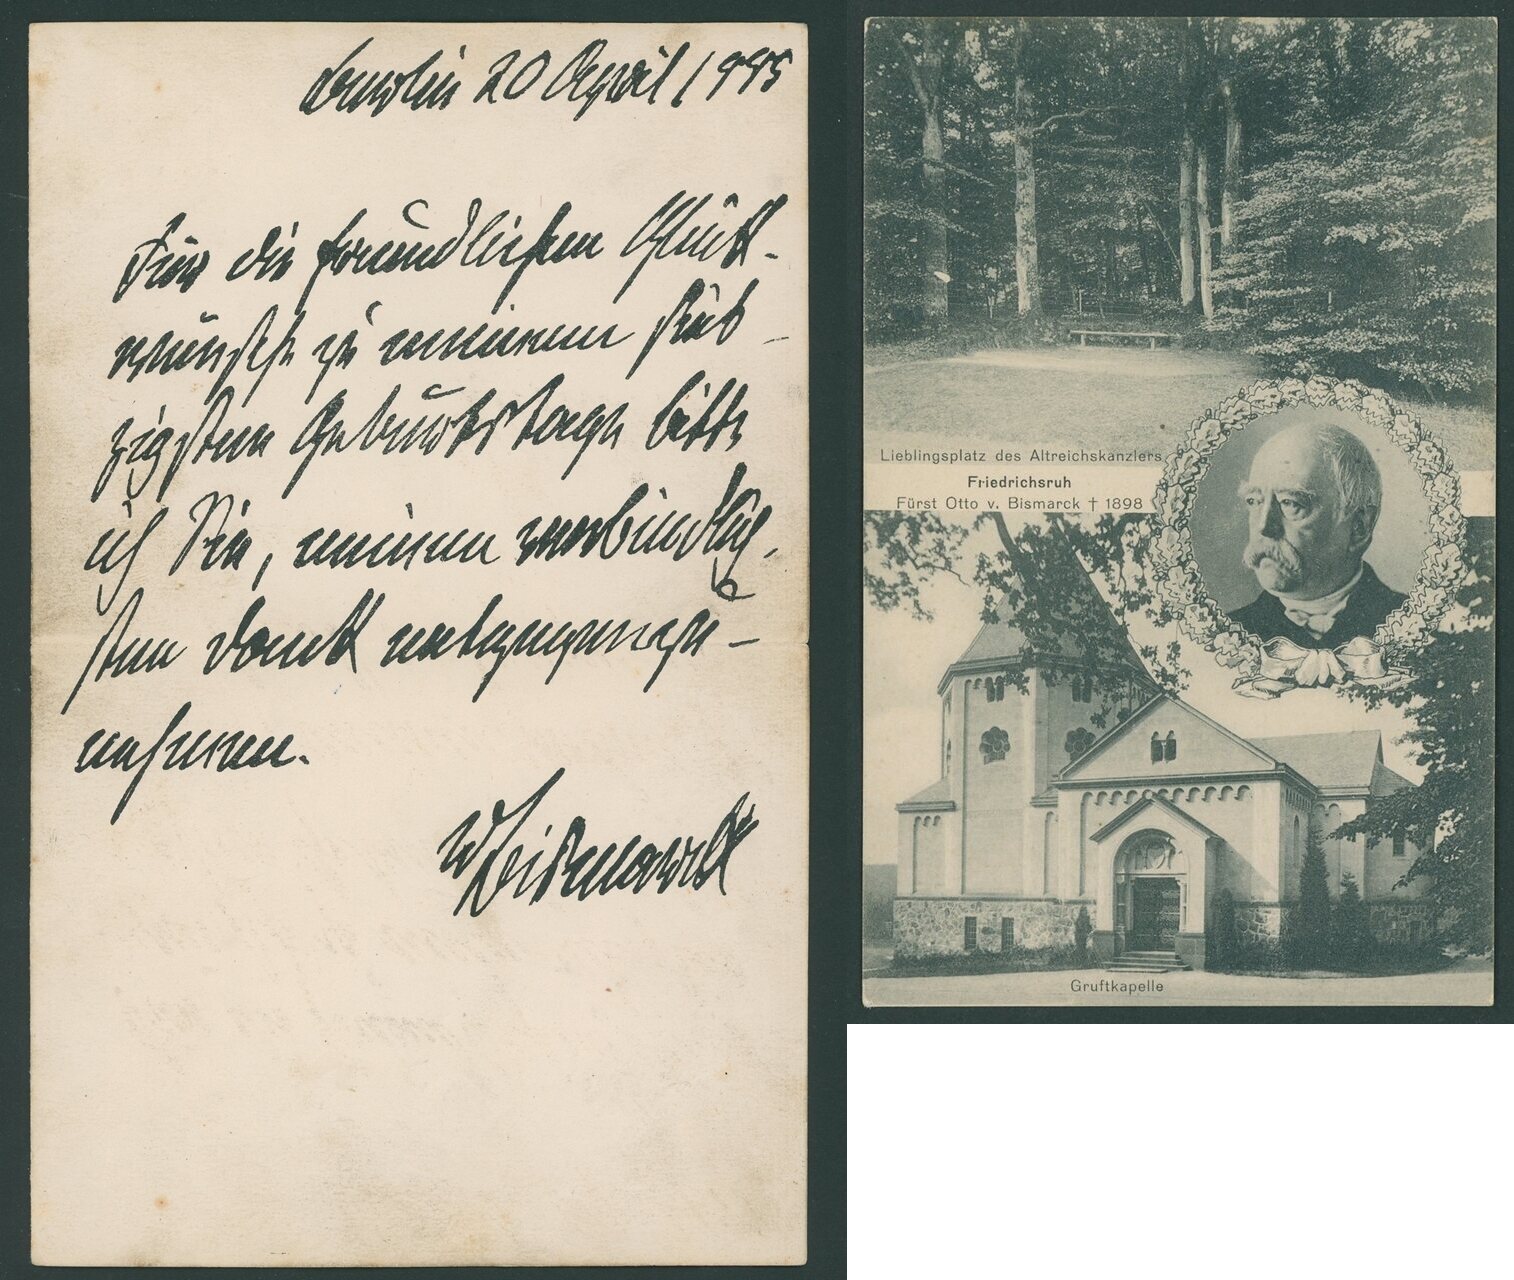 Berlin 20 April 1885
Für die freundlichen Glück-
wünsche zu meinem sieb-
zigsten Geburtstage bitte
ich Sie, meinen verbindlich-
sten Dank entgegenzu-
nehmen.
v Bismarck
Lieblingsplatz des Altreichskanzlers
Friedrichsruh
Fürst Otto v. Bismarck † 1898
Gruftkapelle